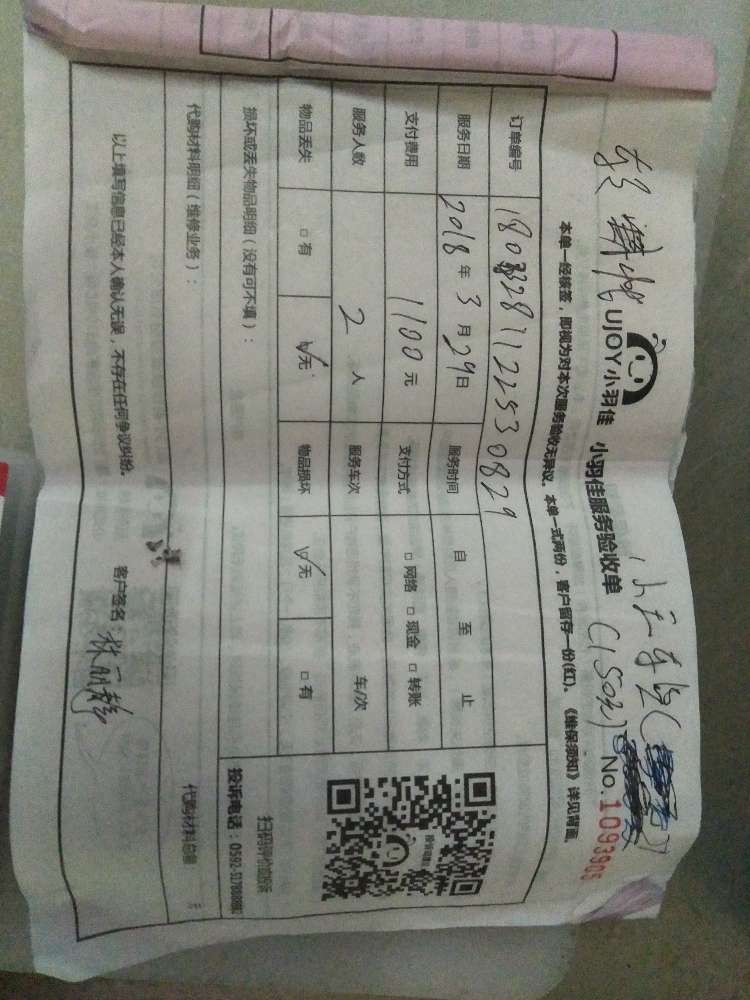 UJOY小羽佳 小羽佳服务验收单 No.1093905
本单一经核签，即视为对本次服务验收无异议。本单一式两份，客户留存一份(红)。《维保须知》详见背面。
订单编号
服务日期 2018 年 3 月 29 日 服务时间 自 至 止
支付费用 1100 元 支付方式 □ 网络 □ 现金 □ 转账
服务人数 2 人 服务车次 车/次
物品丢失 □ 有 ☑ 无 物品损坏 ☑ 无 □ 有
扫码评价或投诉
投诉电话：0592-
损坏或丢失物品明细（没有可不填）：
代购材料明细（维修业务）： 代购材料总量
以上填写信息已经本人确认无误，不存在任何争议纠纷。 客户签名：